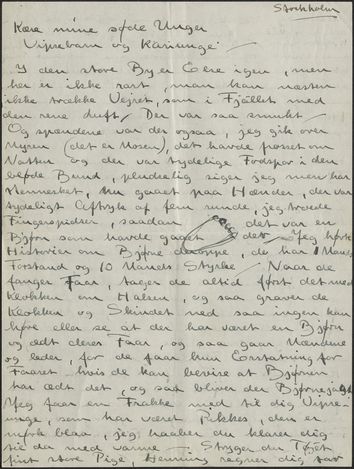 Stockholm
Kære mine søde Unger
Vipsebarn og Kariunge!
I den store By er Else igen, men
her er ikke rart, man kan næsten
ikke trække Vejret, som i Fjället med
den rene duft. Der var saa smukt
Og spændende var der ogsaa, jeg gik over
Myren (det er Mosen), det havde frosset om
Natten og der var tydelige Fodspor i den
bløde Bund, pludselig siger jeg men her
Mennesket, nu gaaet paa Hænder, der var
tydeligt Aftryk af fem runde, jeg troede
Fingerspidser, saadan det var en
Bjørn som havde gaaet der. Jeg hørte
Historier om Bjørne deroppe, de har 1 Mands
Forstand og 10 Mands Styrke Naar de
fanger Faar, tager de altid først det med
Klokken om Halsen, og saa graver de
Klokken og Skindet ned saa ingen kan
høre eller se at der har været en Bjørn
og ædt deres Faar, og saa gaar Mændene
og leder, for de faar kun Erstatning for
Faaret hvis de kan bevise at Bjørnen
har ædt det, og saa bliver der Bjørnejagt
Jeg faar en Frakke med til dig Vipse-
unge, som har været Pikkes, den er
mørk blaa, jeg haaber du klarer dig
til da med varme Stryger du Tøjet
fint store Pige, Henning regner dig for